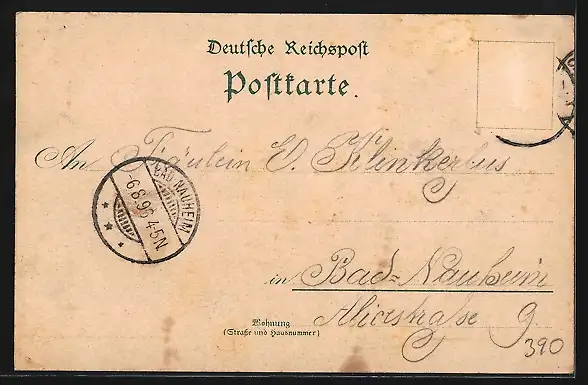 Deutsche Reichspost
Postkarte.
An Fräulein E. Klinkerfus
BAD NAUHEIM
-6.8.96 4-5N
in Bad-Nauheim
Wohnung
(Straße und Hausnummer)
Alicestraße 9.
390